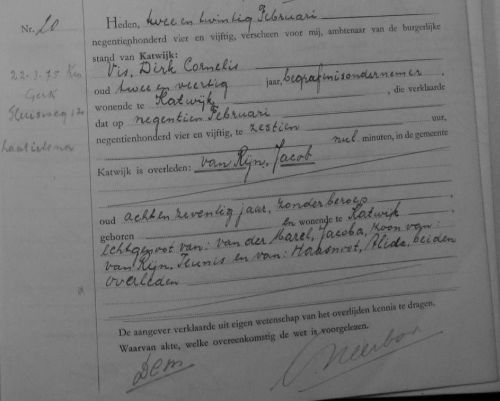 Nr. 20
Heden, twee en twintig Februari
negentienhonderd vier en vijftig, verscheen voor mij, ambtenaar van de burgerlijke
stand van Katwijk:
Vis, Dirk Cornelis
oud twee en veertig jaar, begrafenisondernemer,
wonende te Katwijk, die verklaarde
dat op negentien Februari
negentienhonderd vier en vijftig, te zestien uur,
nul minuten, in de gemeente
Katwijk is overleden: van Rijn, Jacob
oud acht en zeventig jaar, zonder beroep
geboren en wonende te Katwijk
echtgenoot van: van der Marel, Jacoba, zoon van:
van Rijn, Teunis en van: Haasnoot, Alida, beiden
overleden
De aangever verklaarde uit eigen wetenschap van het overlijden kennis te dragen.
Waarvan akte, welke overeenkomstig de wet is voorgelezen.
22-3-75